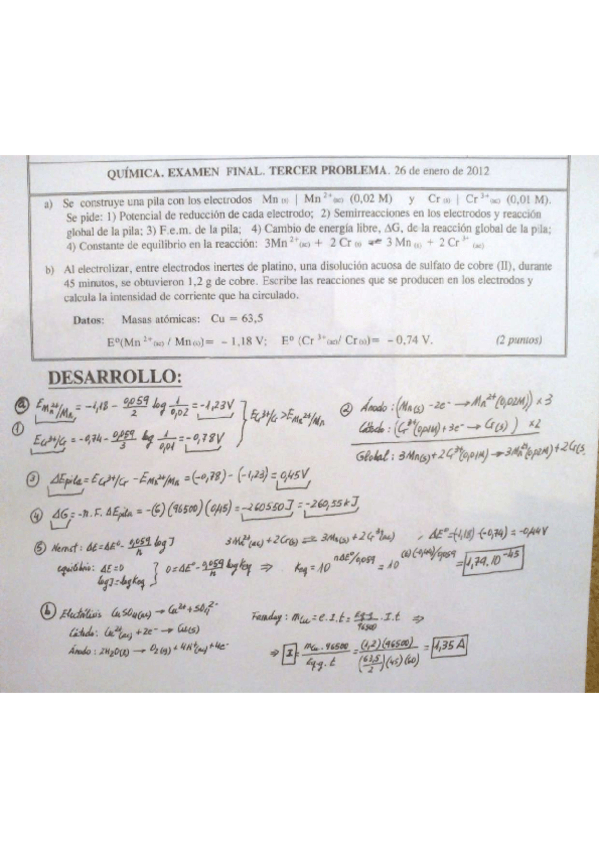 QUÍMICA. EXAMEN FINAL. TERCER PROBLEMA. 26 de enero de 2012
a) Se construye una pila con los electrodos Mn (s) | Mn 2+(ac) (0,02 M) y Cr (s) | Cr 3+(ac) (0,01 M).
Se pide: 1) Potencial de reducción de cada electrodo; 2) Semirreacciones en los electrodos y reacción
global de la pila; 3) F.e.m. de la pila; 4) Cambio de energía libre, ΔG, de la reacción global de la pila;
4) Constante de equilibrio en la reacción: 3Mn 2+(ac) + 2 Cr (s) ⇌ 3 Mn (s) + 2 Cr 3+ (ac)
b) Al electrolizar, entre electrodos inertes de platino, una disolución acuosa de sulfato de cobre (II), durante
45 minutos, se obtuvieron 1,2 g de cobre. Escribe las reacciones que se producen en los electrodos y
calcula la intensidad de corriente que ha circulado.
Datos: Masas atómicas: Cu = 63,5
Eº(Mn 2+(ac) / Mn(s))= – 1,18 V; Eº (Cr 3+(ac)/ Cr(s))= – 0,74 V. (2 puntos)
DESARROLLO:
ⓐ
① E Mn2+/Mn = -1,18 - 0,059/2 log 1/0,02 = -1,23V
E Cr3+/Cr = -0,74 - 0,059/3 log 1/0,01 = -0,78V } E Cr3+/Cr > E Mn2+/Mn
② Ánodo: (Mn(s) - 2e- → Mn2+(0,02M)) x 3
Cátodo: (Cr3+(0,01M) + 3e- → Cr(s)) x2
Global: 3Mn(s) + 2Cr3+(0,01M) → 3Mn2+(0,02M) + 2Cr(s)
③ ΔEpila = E Cr3+/Cr - E Mn2+/Mn = (-0,78) - (-1,23) = 0,45V
④ ΔG = -n.F.ΔEpila = -(6)(96500)(0,45) = -260550J = -260,55kJ
⑤ Nernst: ΔE = ΔEº - 0,059/n log J 3Mn2+(ac) + 2Cr(s) ⇌ 3Mn(s) + 2Cr3+(ac) ; ΔEº = (-1,18) - (-0,74) = -0,44V
equilibrio: ΔE = 0
log J = log Keq } 0 = ΔEº - 0,059/n log Keq ⇒ Keq = 10 nΔEº/0,059 = 10 (6)(-0,44)/0,059 = 1,79.10-45
ⓑ Electrólisis CuSO4(ac) → Cu2+ + SO42- Faraday: mCu = e.I.t = Eq-g/96500 . I.t ⇒
Cátodo: Cu2+(ac) + 2e- → Cu(s)
Ánodo: 2H2O(l) → O2(g) + 4H+(ac) + 4e- ⇒ I = mCu.96500/Eqg.t = (1,2)(96500)/(63,5/2)(45)(60) = 1,35 A